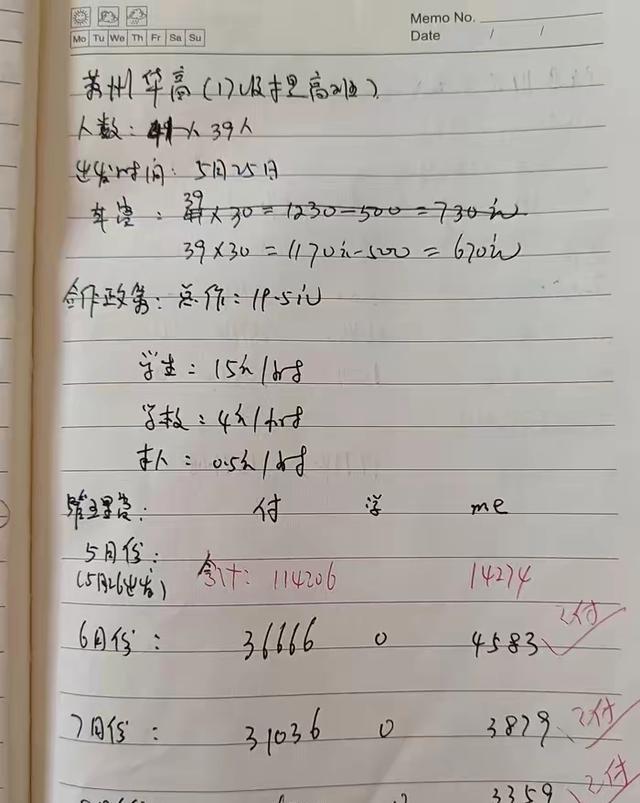 Memo No.
Mo Tu We Th Fr Sa Su
Date / /
苏州华高(17级提高班)
人数: 41人 39人
出发时间: 5月25日
车费: 41 39 ×30=1230-500=730元
39×30=1170元-500=670元
合作政策: 总价: 19.5元
学生: 15元/时
学校: 4元/时
本人: 0.5元/时
管理费: 付 学 me
5月份:
(5月26出发) 合计: 114206 14274
6月份: 36666 0 4583 已付
7月份: 31036 0 3879 已付
3359 已付